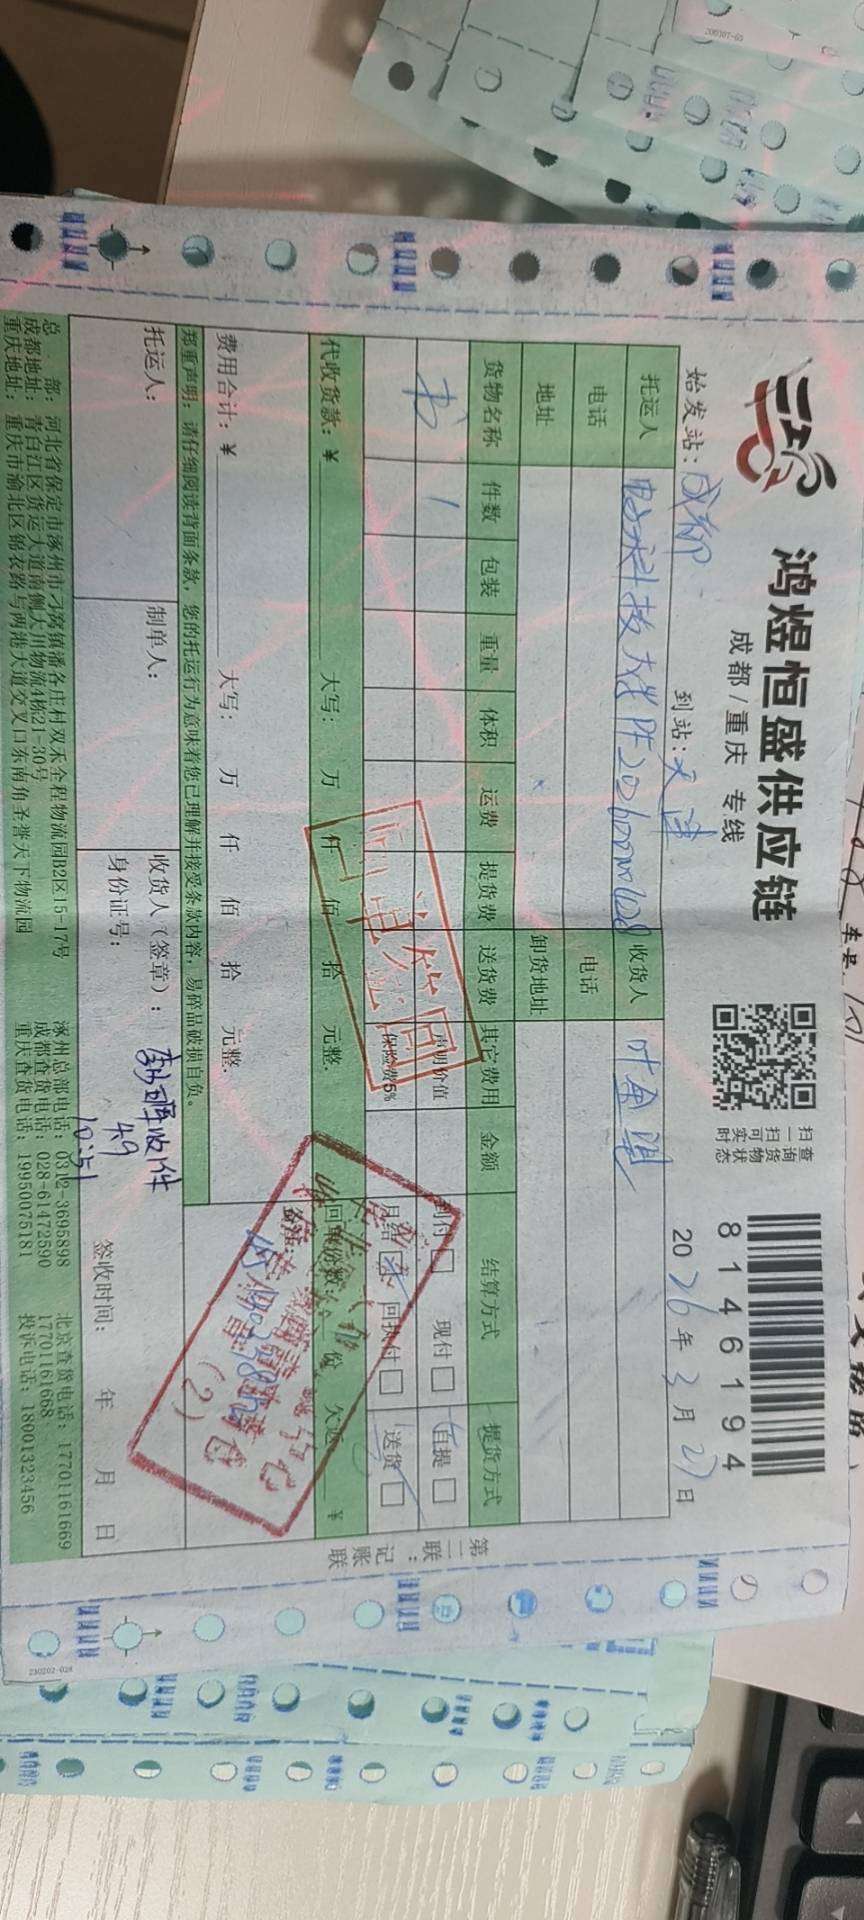 鸿煜恒盛供应链
成都/重庆 专线
扫一扫可实时
查询货物状态
8146194
始发站：成都
到站：天津
2026年3月27日
托运人
收货人
叶金
电话
电话
地址
卸货地址
货物名称 件数 包装 重量 体积 运费 提货费 送货费 其它费用 金额 结算方式 提货方式
书 1
声明价值
到付□ 现付□
自提□
保险费5%
月结 回执付□
送货□
回单签
代收货款：￥ 大写： 万 仟 佰 拾 元整
回单份数： 份 欠返 ￥
费用合计：￥ 大写： 万 仟 佰 拾 元整.
备注：
郑重声明：请仔细阅读背面条款，您的托运行为意味着您已理解并接受条款内容，易碎品破损自负。
(2)
托运人：
制单人：
收货人（签章）：
收件
身份证号：
4.9
10:51
签收时间： 年 月 日
总 部：河北省保定市涿州市刁窝镇潘各庄村双禾全程物流园B2区15-17号
涿州总部电话：0312-3695898
北京查货电话：17701161669
成都地址：青白江区货运大道南侧大川物流4栋21-30号
成都查货电话：028-61472590
17701161668
重庆地址：重庆市渝北区锦衣路与两港大道交叉口东南角圣誉天下物流园
重庆查货电话：19950075181
投诉电话：18001323456
第二联：记账联
230202-028